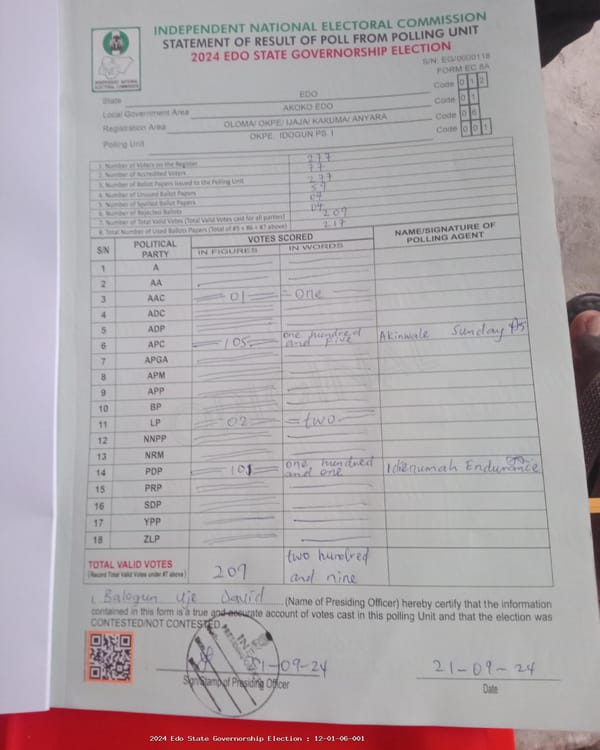 INDEPENDENT NATIONAL ELECTORAL COMMISSION
STATEMENT OF RESULT OF POLL FROM POLLING UNIT
2024 EDO STATE GOVERNORSHIP ELECTION
S/N: EG/0000118
FORM EC 8A
INDEPENDENT NATIONAL ELECTORAL COMMISSION
State EDO Code 012
Local Government Area AKOKO EDO Code 01
Registration Area OLOMA/ OKPE/ IJAJA/ KAKUMA/ ANYARA Code 06
Polling Unit OKPE, IDOGUN PS. I Code 001
1. Number of Voters on the Register 277
2. Number of Accredited Voters
3. Number of Ballot Papers Issued to the Polling Unit 277
4. Number of Unused Ballot Papers
5. Number of Spoiled Ballot Papers 04
6. Number of Rejected Ballots 04
7. Number of Total Valid Votes (Total Valid Votes cast for all parties) 209
8. Total Number of Used Ballots Papers (Total of #5 + #6 + #7 above) 217
S/N POLITICAL PARTY VOTES SCORED NAME/SIGNATURE OF POLLING AGENT
IN FIGURES IN WORDS
1 A
2 AA
3 AAC 01 one
4 ADC
5 ADP
6 APC 105 one hundred and five Akinwale Sunday
7 APGA
8 APM
9 APP
10 BP
11 LP 02 two
12 NNPP
13 NRM
14 PDP 101 one hundred and one Idienumah Endurance
15 PRP
16 SDP
17 YPP
18 ZLP
TOTAL VALID VOTES 209 two hundred and nine
(Record Total Valid Votes under #7 above)
I, Balogun Uje David (Name of Presiding Officer) hereby certify that the information
contained in this form is a true and accurate account of votes cast in this polling Unit and that the election was
CONTESTED/NOT CONTESTED
21-09-24 21-09-24
Sign/Stamp of Presiding Officer Date
2024 Edo State Governorship Election : 12-01-06-001